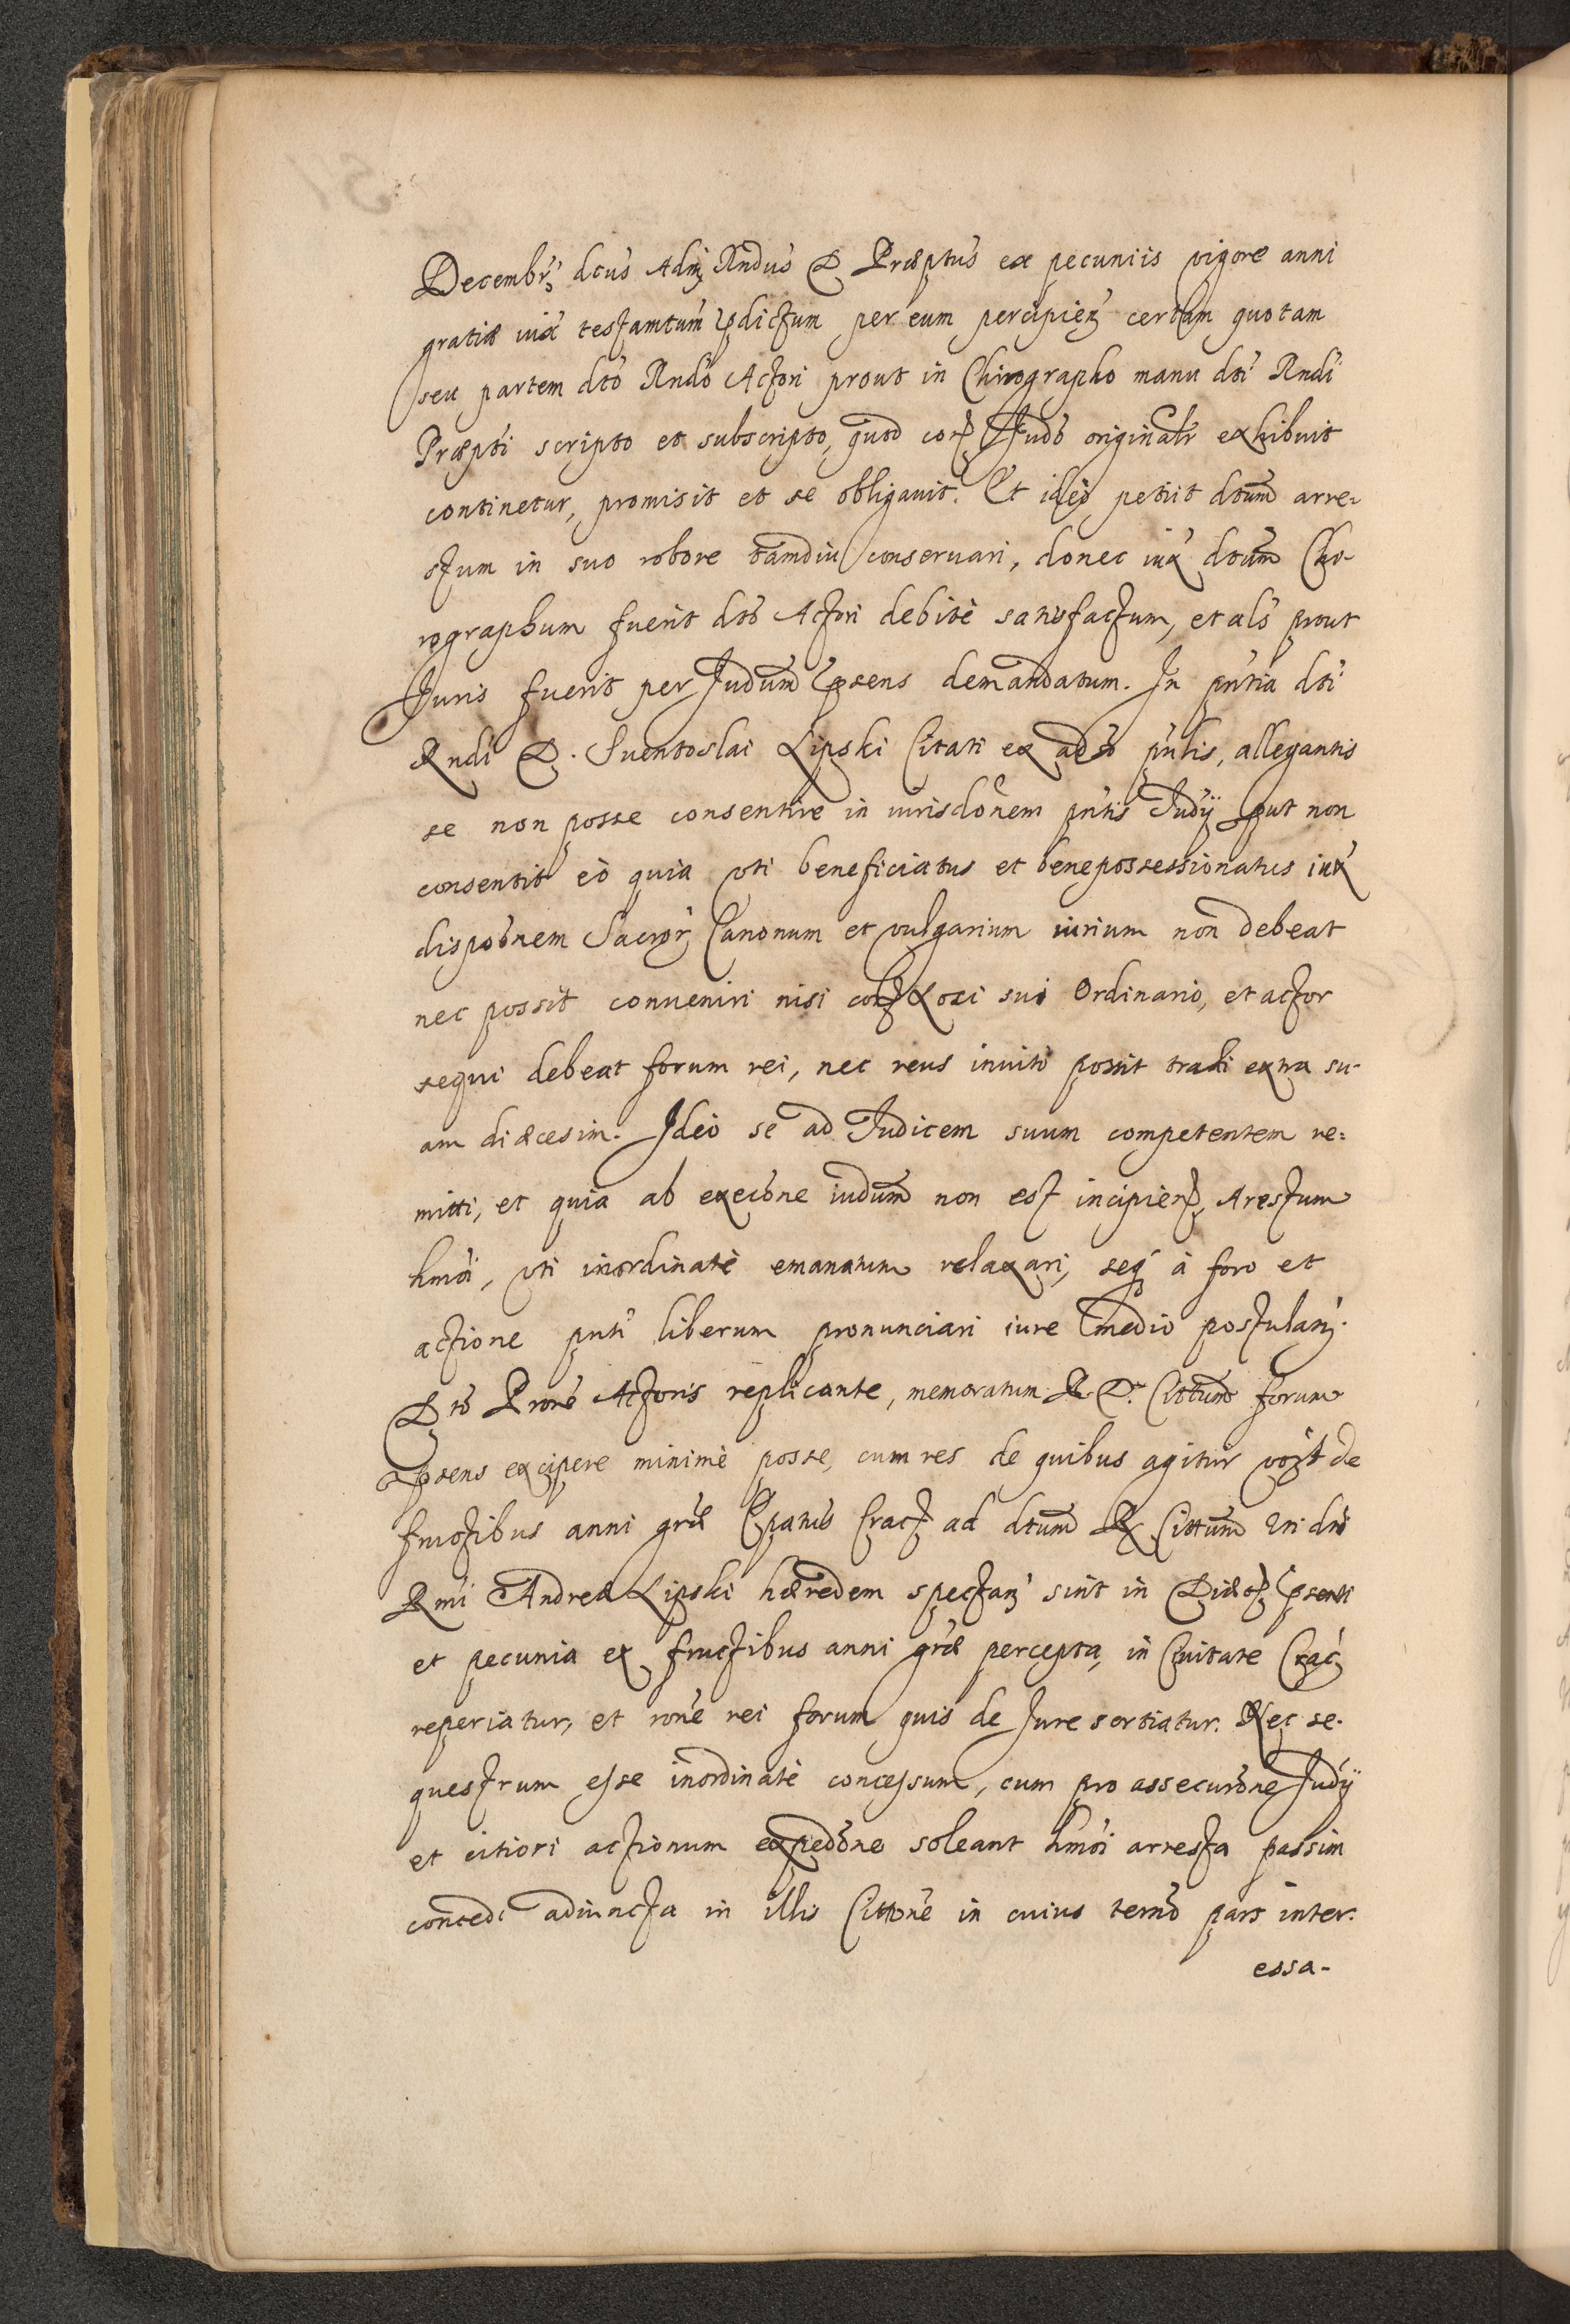 Decembr; dcus Adm Rndus D Præptus ex pecuniis vigore anni
gratiæ iux testamtum pdictum per eum percipien certam quotam
seu partem dto Rndo Actori prout in Chirographo manu dti Rndi
Præpti scripto et subscripto, quod cor Judo originalr exhibuit
continetur, promisit et se obligauit. Et ideò petiit dtum arre-
stum in suo robore tamdiu conseruari, donec iux dtum Chi-
rographum fuerit dto Actori debitè satisfactum, et als prout
Juris fuerit per Judum psens demandatum. In pntia dti
Rndi D. Suentoslai Lipski Citati ex aduo pntis, allegantis
se non posse consentire in iurisdonem pntis Judÿ put non
consentit eò quia vti beneficiatus et benepossessionatus iux
dispoönem Sacror Canonum et vulgarium iurium non debeat
nec possit conueniri nisi cor Loci sui Ordinario, et actor
sequi debeat forum rei, nec reus inuitò possit trahi extra su-
am diæcesim. Ideò se ad Judicem suum competentem re-
mitti, et quia ab execöne iudum non est incipien, Arestum
hmoi, vti inordinatè emanatum relaxari, seq à foro et
actione pnti liberum pronunciari iure medio postulan.
Dto Prore Actoris replicante, memoratum R. D. Cittum forum
psens excipere minimè posse, cum res de quibus agitur vozt de
fructibus anni græ Epatus Crac ad dtum R Cittum vti dni
Rmi Andreæ Lipski hæredem spectan sint in Diæc psenti
et pecunia ex fructibus anni græ percepta, in Ciuitate Crac
reperiatur, et rone rei forum quis de Jure sortiatur. Nec se-
questrum esse inordinatè concessum, cum pro assecurone Judÿ
et citiori actionum expedone soleant hmoi arresta passim
concedi adiuncta in illis Cittone in cuius termo pars inter-
essa-